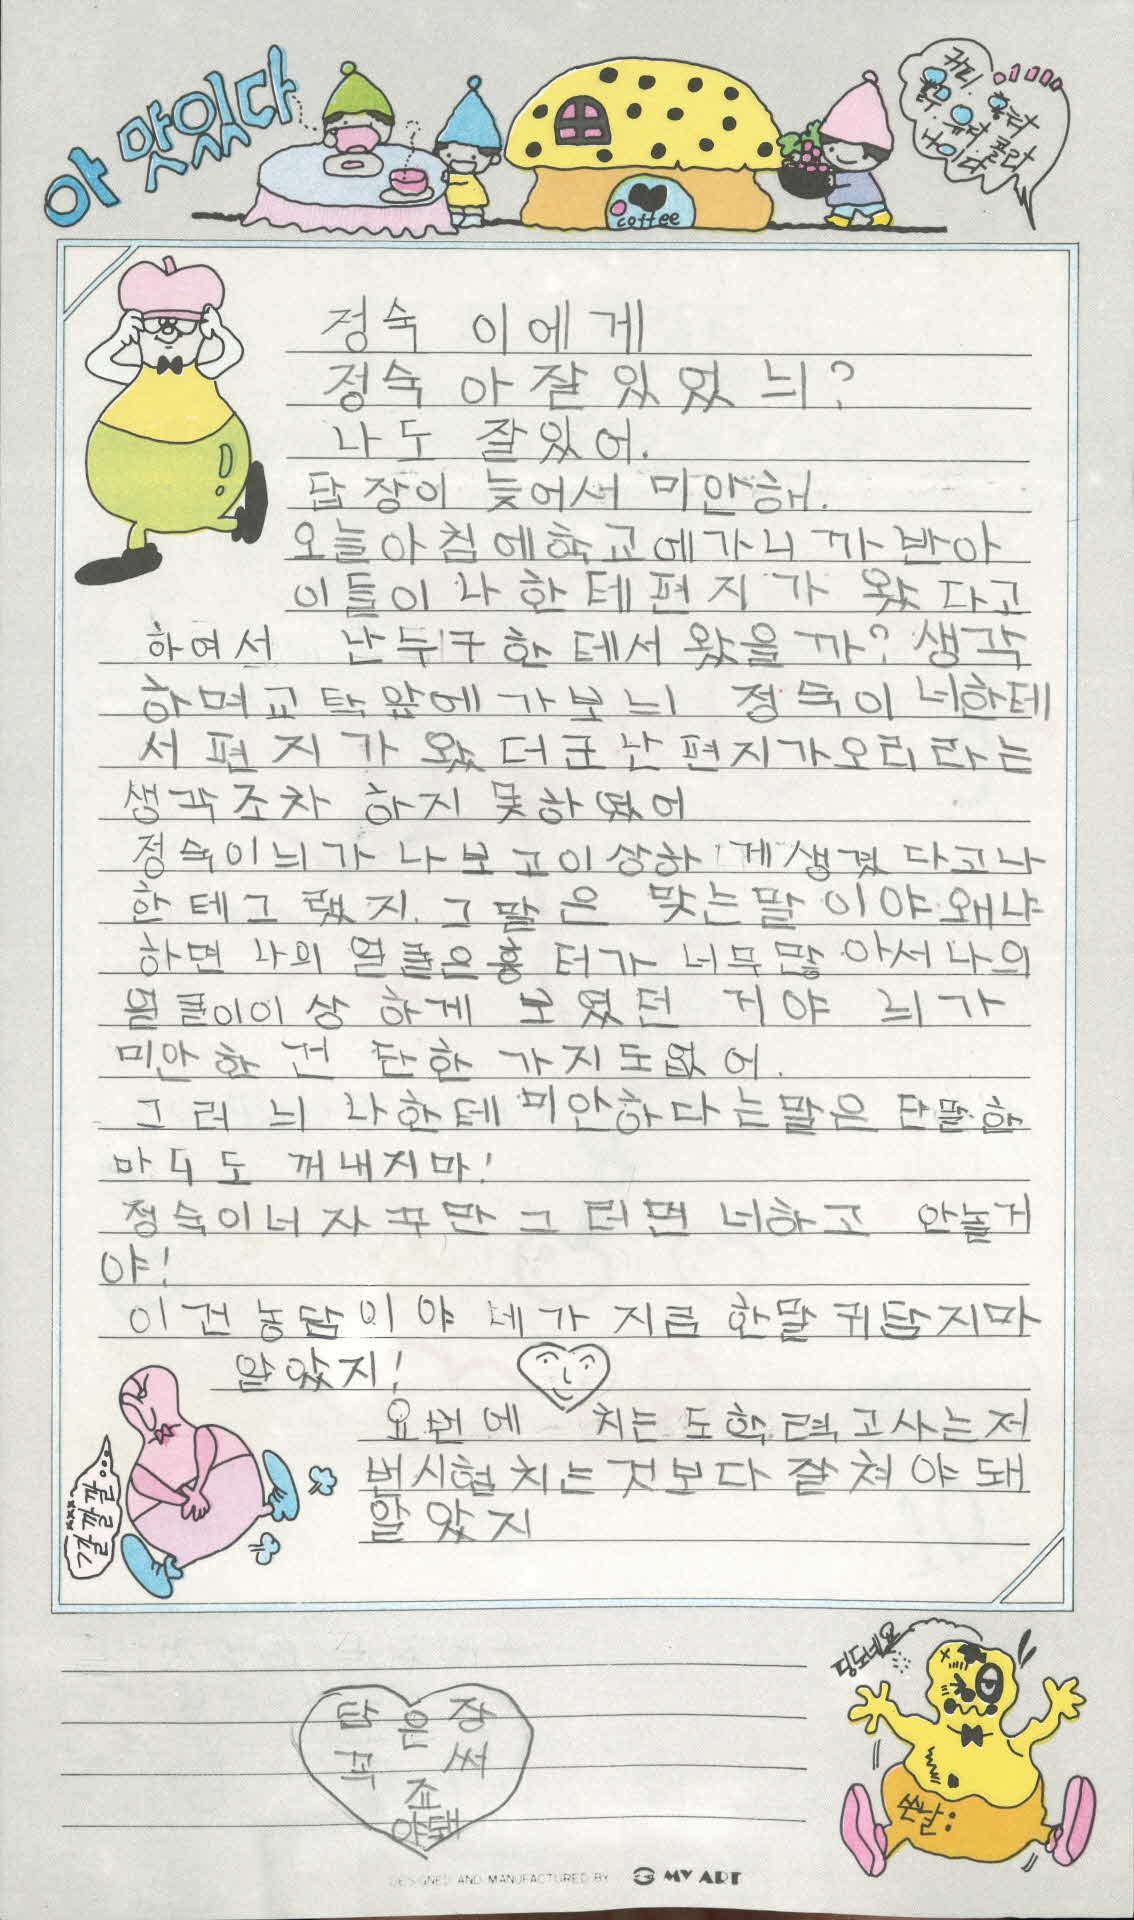 아 맛있다
커피.
홍차
쥬스 콜라
coffee
정숙 이에게
정숙 아 잘 있었 늬?
나도 잘있어.
답장이 늦어서 미안해.
오늘아침에학교에가니까반아
이들이나한테편지가 왔다고
하여서 난누구한테서왔을까? 생각
하며교탁앞에가보늬 정숙이 너한테
서편지가왔더군난편지가오리라는
생각조차 하지 못하였어
정숙이늬가나보고이상하게생겼다고나
한테그랬지.그말은 맞는말이야왜냐
하면 나의 얼굴은흉터가 너무많아서나의
얼굴이이상하게 보였던거야 늬가
미안한건 단한가지도없어.
그러늬나한테미안하다는말은단말한
마디도 꺼내지마!
정숙이너자꾸만그러면 너하고 안놀거
야!
이건농담이야 네가지금한말귀담지마
알았지!
요번에 치는도학력고사는저
번시험치는것보다잘쳐야돼
알았지
꾸르르르
답장은
꼭써
죠
야돼
띵호네요
쓴날:
DESIGNED AND MANUFACTURED BY MY ART